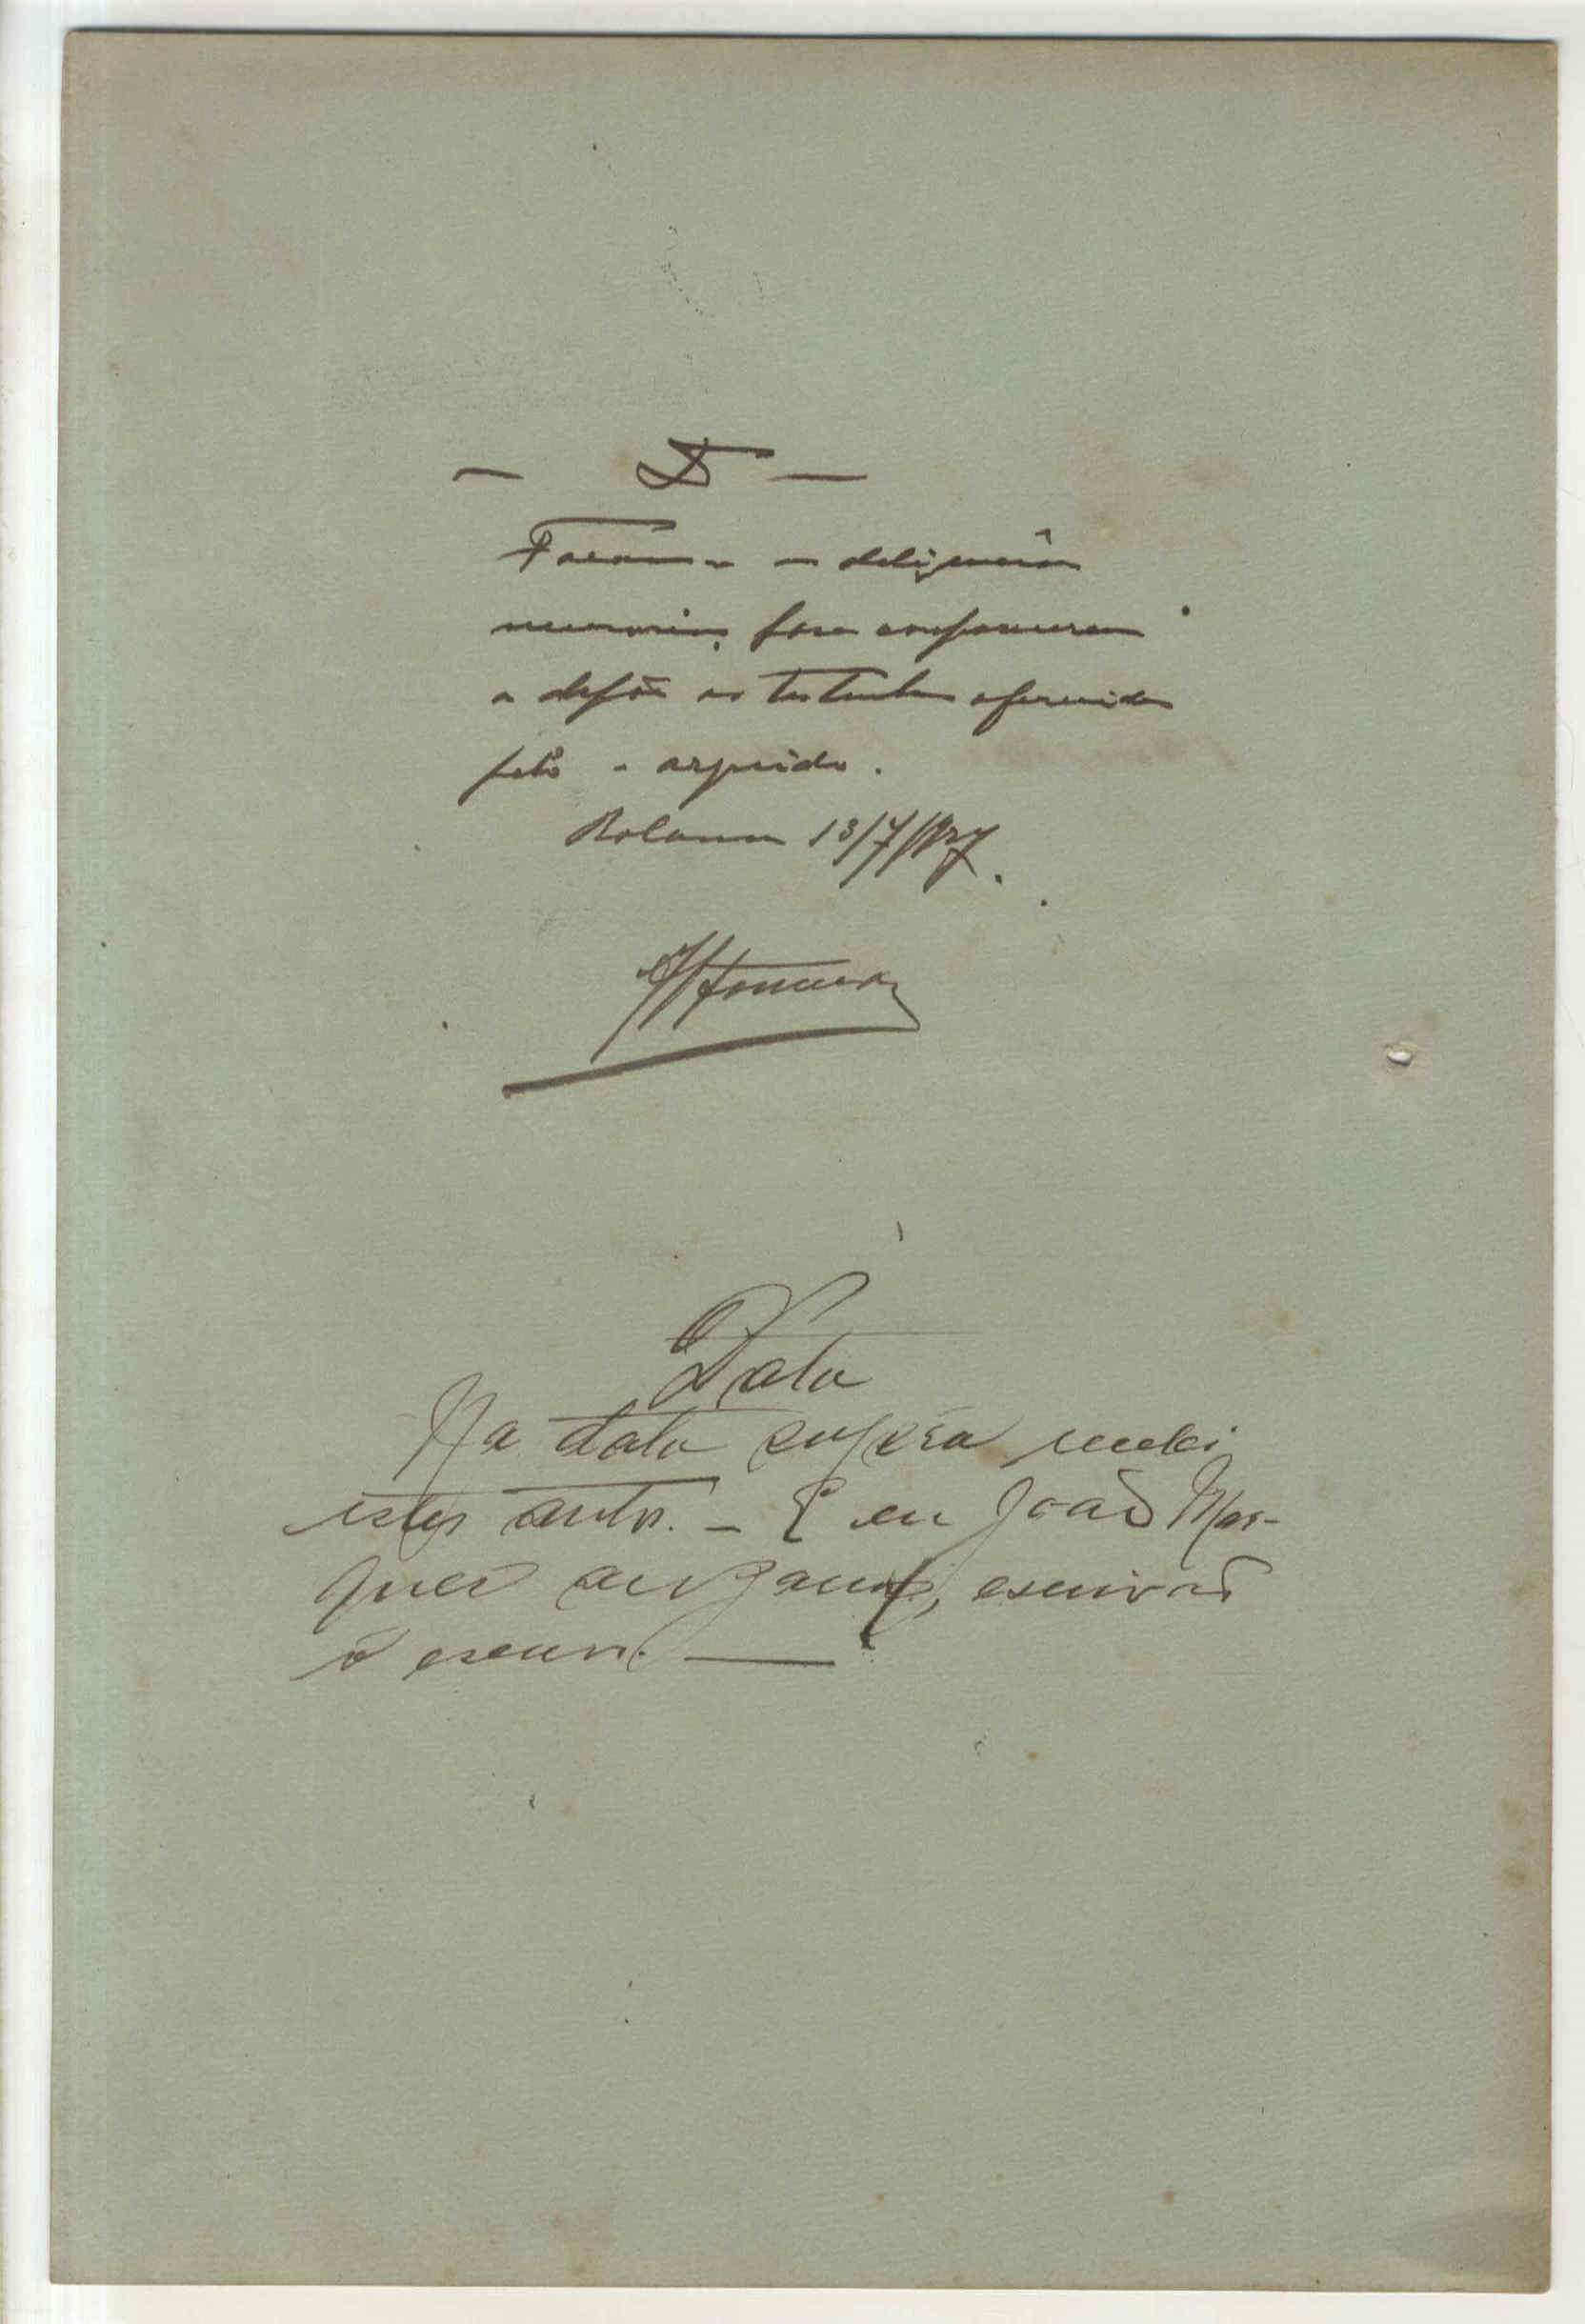 — D —
Façam-se as deligencias
necessarias para comparecerem
a depôr as testemunhas oferecidas
pelo arguido.
Bolama 13/7/927.
Data
Na data supra recebi
estes autos. — E eu João Mar-
ques, escrivão
o escrevi. —